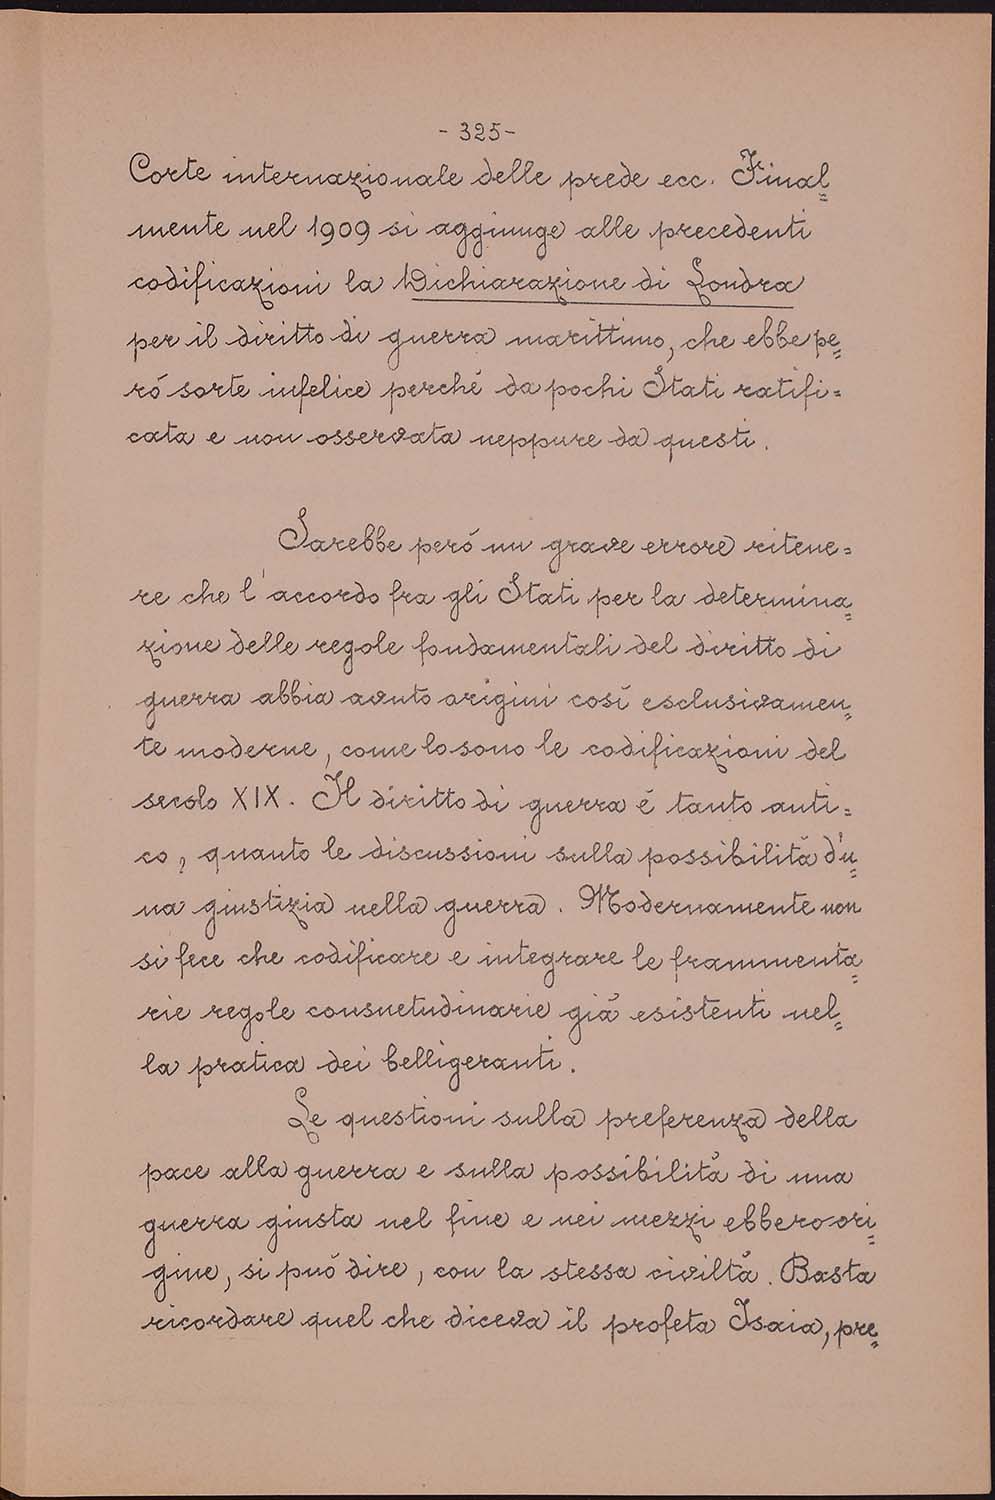 - 325 -
Corte internazionale delle prede ecc. Final=
mente nel 1909 si aggiunge alle precedenti
codificazioni la Dichiarazione di Londra
per il diritto di guerra marittimo, che ebbe pe=
ró sorte infelice perché da pochi Stati ratifi=
cata e non osservata neppure da questi.
Sarebbe peró un grave errore ritene=
re che l'accordo fra gli Stati per la determina=
zione delle regole fondamentali del diritto di
guerra abbia avuto origini cosí esclusivamen=
te moderne, come lo sono le codificazioni del
secolo XIX. Il diritto di guerra é tanto anti=
co, quanto le discussioni sulla possibilitá d'u=
na giustizia nella guerra. Modernamente non
si fece che codificare e integrare le frammenta=
rie regole consuetudinarie giá esistenti nel=
la pratica dei belligeranti.
Le questioni sulla preferenza della
pace alla guerra e sulla possibilitá di una
guerra giusta nel fine e nei mezzi ebbero ori=
gine, si puó dire, con la stessa civiltá. Basta
ricordare quel che diceva il profeta Isaia, pre=